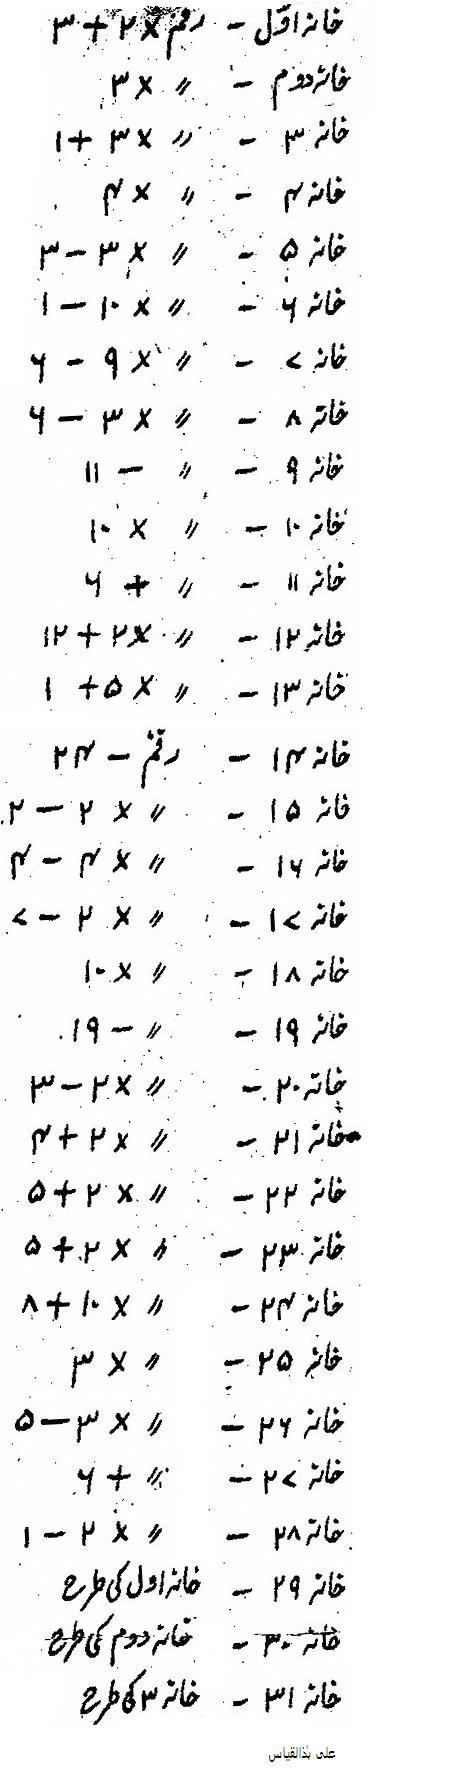 خانہ اول - رقم × ۲ + ۳
خانہ دوم - 〃 × ۳
خانہ ۳ - 〃 × ۳ + ۱
خانہ ۴ - 〃 × ۴
خانہ ۵ - 〃 × ۳ - ۳
خانہ ۶ - 〃 × ۱۰ - ۱
خانہ ۷ - 〃 × ۹ - ۶
خانہ ۸ - 〃 × ۳ - ۶
خانہ ۹ - 〃 - ۱۱
خانہ ۱۰ - 〃 × ۱۰
خانہ ۱۱ - 〃 + ۶
خانہ ۱۲ - 〃 × ۲ + ۱۲
خانہ ۱۳ - 〃 × ۵ + ۱
خانہ ۱۴ - رقم - ۲۴
خانہ ۱۵ - 〃 × ۲ - ۲
خانہ ۱۶ - 〃 × ۴ - ۴
خانہ ۱۷ - 〃 × ۲ - ۷
خانہ ۱۸ - 〃 × ۱۰
خانہ ۱۹ - 〃 - ۱۹
خانہ ۲۰ - 〃 × ۲ - ۳
خانہ ۲۱ - 〃 × ۲ + ۴
خانہ ۲۲ - 〃 × ۲ + ۵
خانہ ۲۳ - 〃 × ۲ + ۵
خانہ ۲۴ - 〃 × ۱۰ + ۸
خانہ ۲۵ - 〃 × ۳
خانہ ۲۶ - 〃 × ۳ - ۵
خانہ ۲۷ - 〃 + ۶
خانہ ۲۸ - 〃 × ۲ - ۱
خانہ ۲۹ - خانہ اول کی طرح
خانہ ۳۰ - خانہ دوم کی طرح
خانہ ۳۱ - خانہ ۳ کی طرح
علی ہذالقیاس